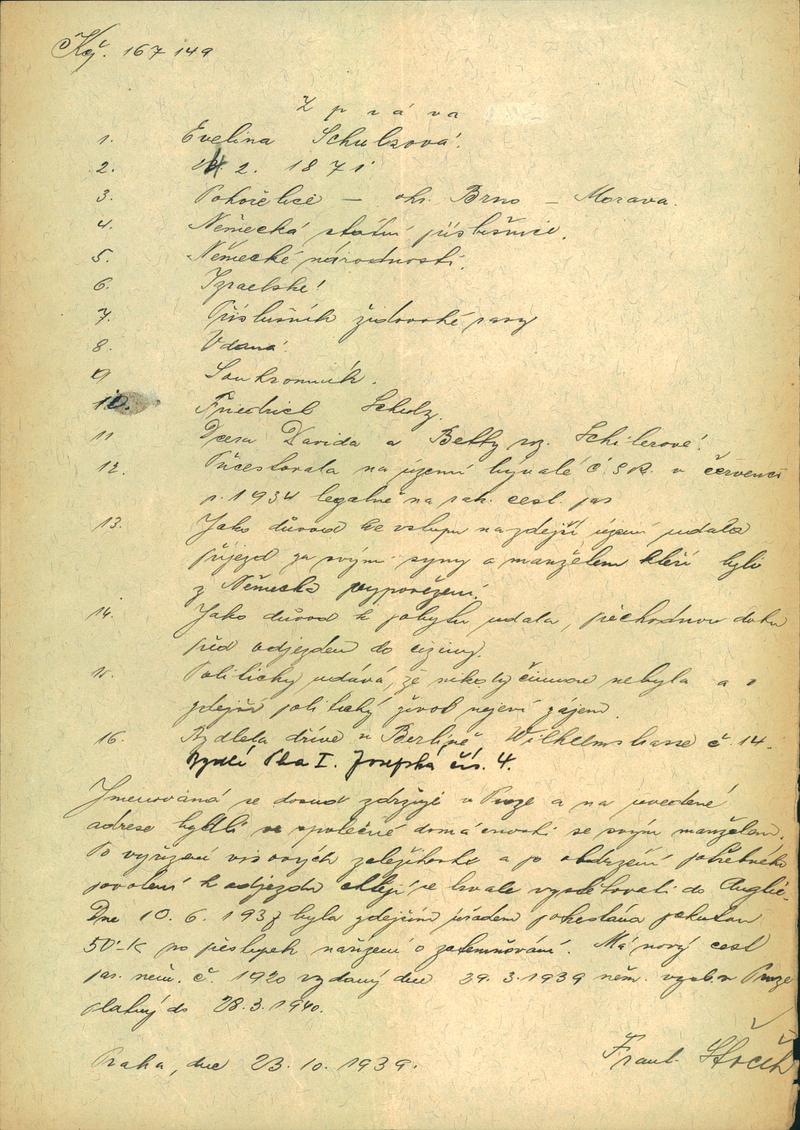 Kčj. 167149
Zpráva
1. Evelina Schulzová.
2. 2. 1871
3. Pohořelice – okr. Brno – Morava.
4. Německá státní příslušnice.
5. Německé národnosti.
6. Izraelské!
7. Příslušník židovské rasy
8. Vdaná.
9 Soukromník.
10. Friedrich Schulz.
11 Dcera Davida a Betty roz. Schilerové!
12. Přicestovala na území bývalé ČSR. v červenci
r. 1934 legalně na cest. pas
13. Jako důvod ke vstupu na zdejší území udala
příjezd za svými syny a manželem kteří byli
z Německa vypovězeni.
14. Jako důvod k pobytu udala, přechodnou dobu
před odjezdem do ciziny.
15. Politicky udává, že nikdy činnou nebyla a o
zdejší politický život nejeví zájem.
16. Bydlela dříve v Berlíně Wilhelmstrasse č. 14.
Bydlí Pha I. Josefská čís. 4.
Jmenovaná se dosud zdržuje v Praze a na uvedené
adrese bydlí ve společné domácnosti se svým manželem.
Po vyřízení visových záležitostí a po obdržení potřebného
povolení k odjezdu chtějí se trvale vystěhovati do Anglie.
Dne 10. 6. 1937 byla zdejším úřadem potrestána pokutou
50'-K pro přestupek nařízení o zatemňování. Má nový cest
pas. něm. č. 1920 vydaný dne 29. 3. 1939 něm. v Praze
platný do 28. 3. 1940.
Praha, dne 23. 10. 1939.
Frant.